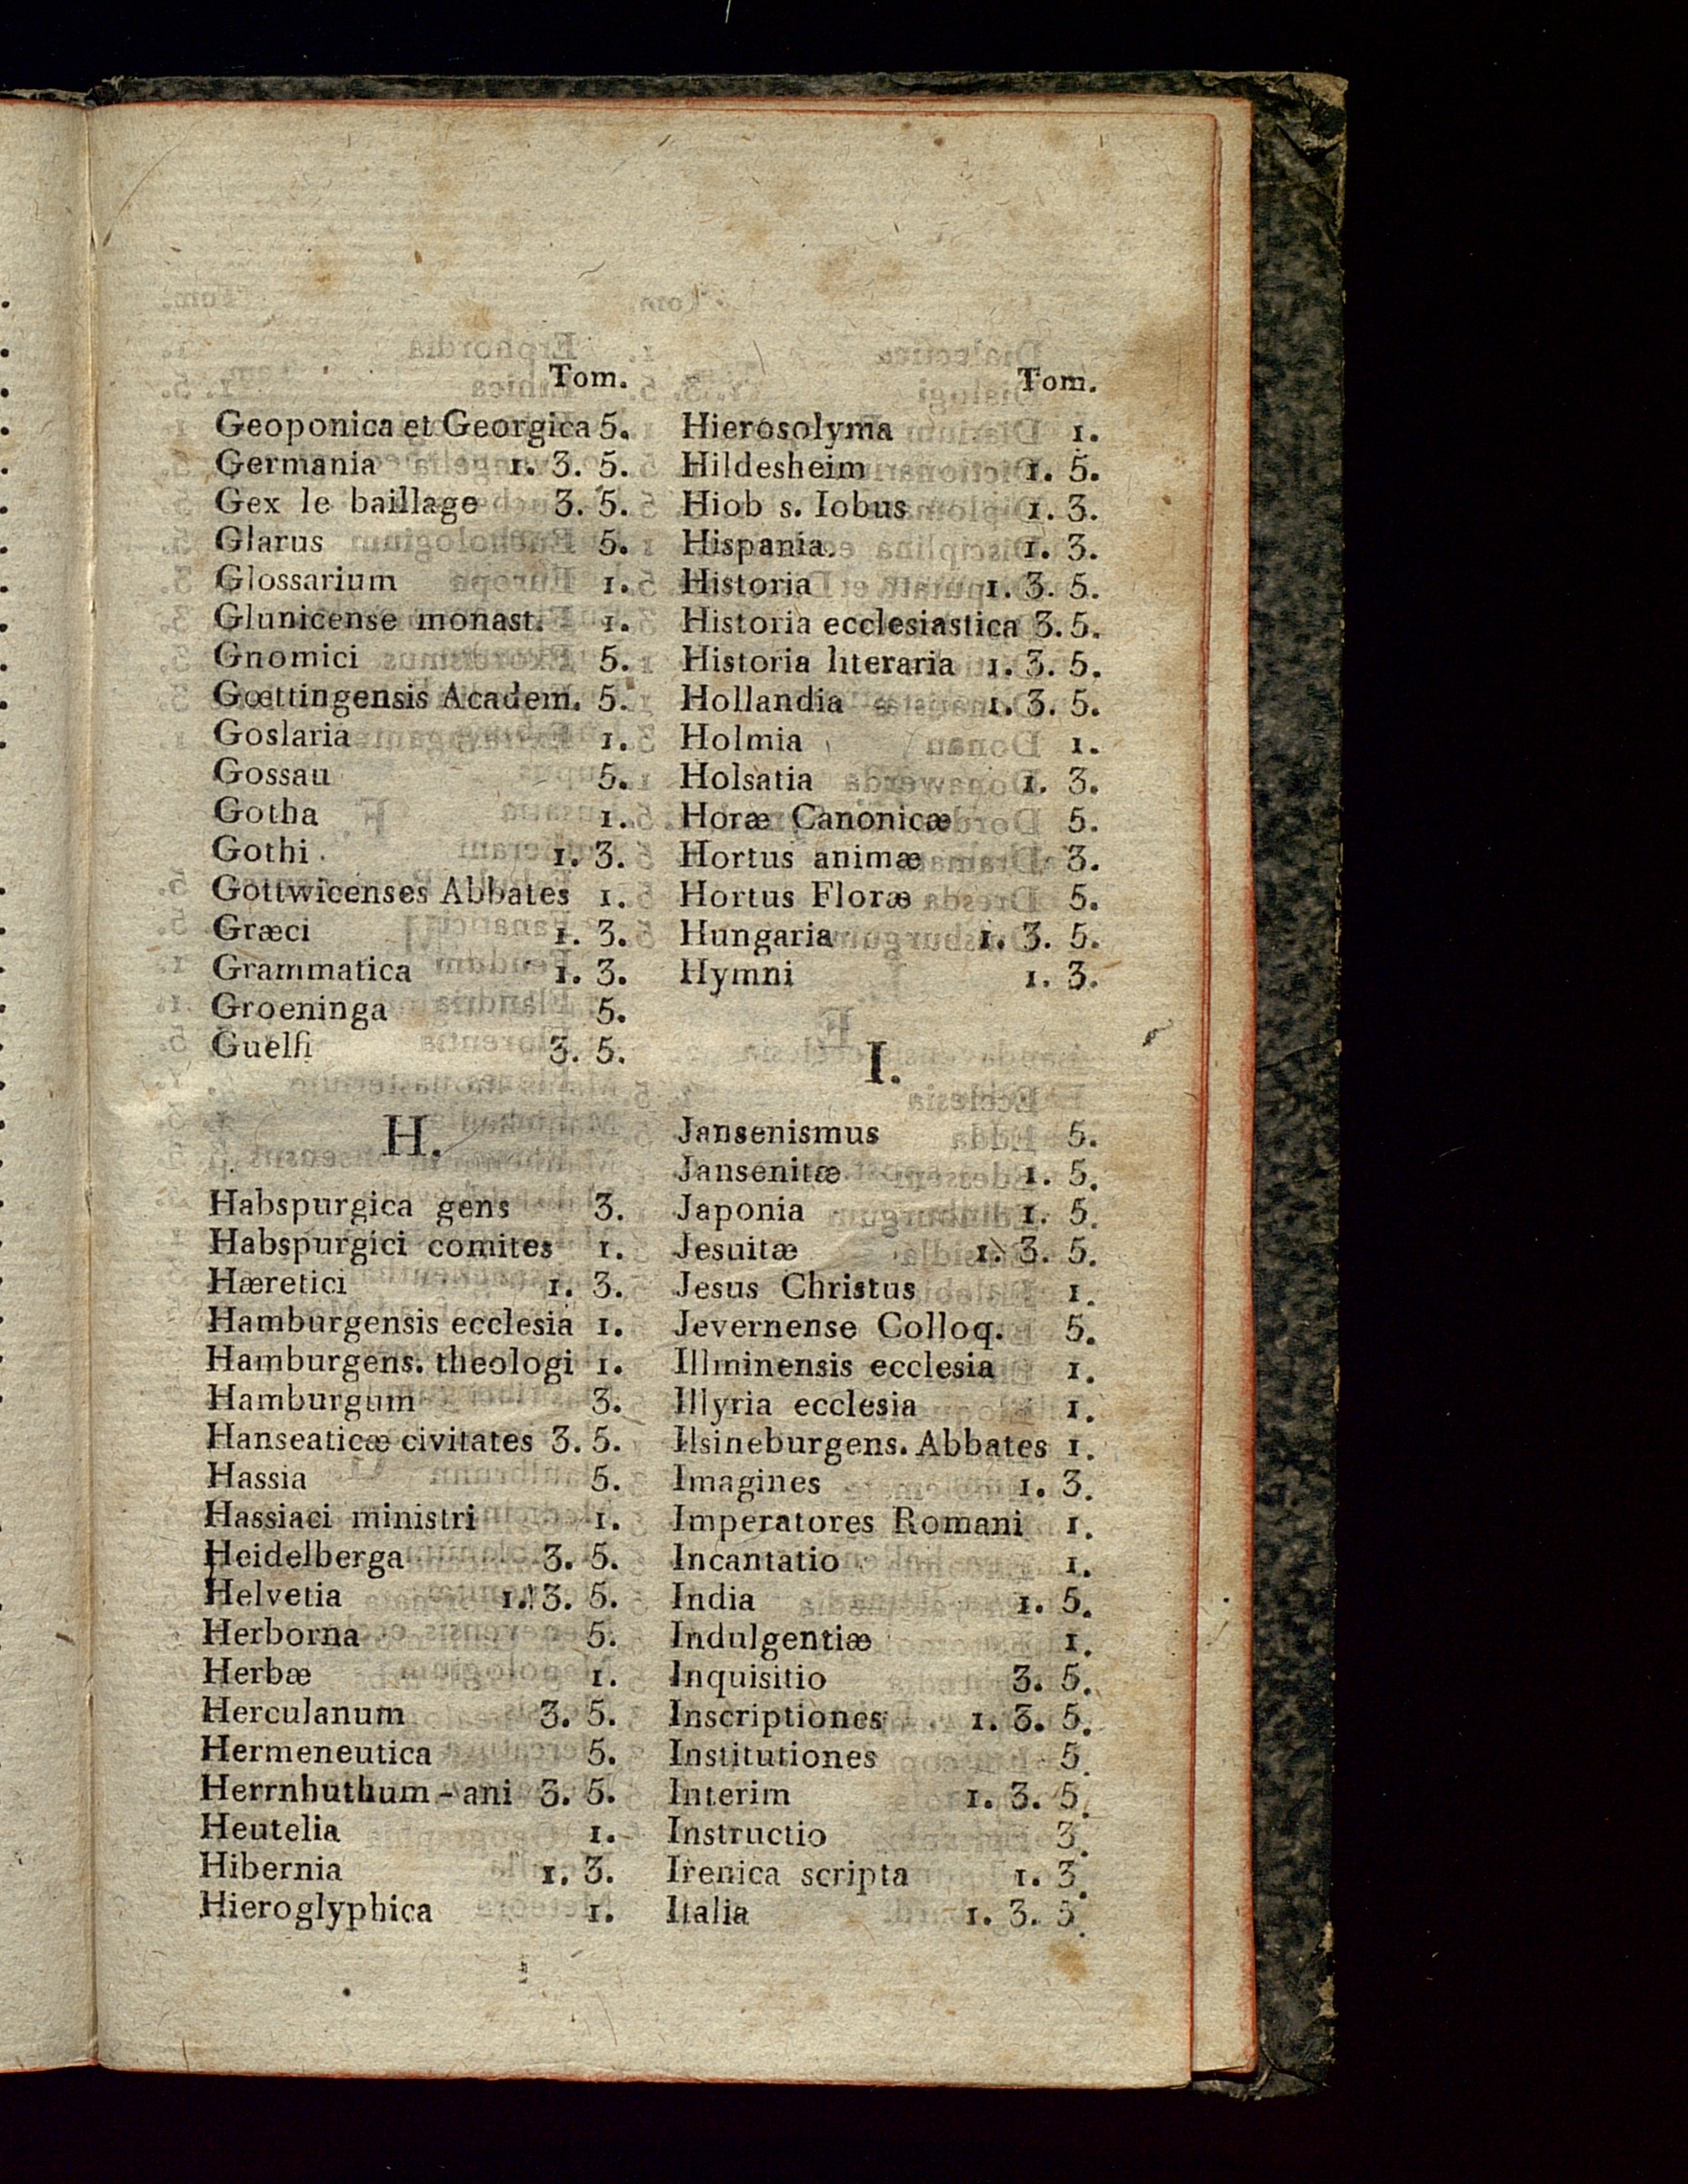 Tom.
Geoponica et Georgica 5.
Germania 1. 3. 5.
Gex le baillage 3. 5.
Glarus 5.
Glossarium 1.
Glunicense monast. 1.
Gnomici 5.
Gœttingensis Academ. 5.
Goslaria 1.
Gossau 5.
Gotha 1.
Gothi 1. 3.
Gottwicenses Abbates 1.
Græci 1. 3.
Grammatica 1. 3.
Groeninga 5.
Guelfi 3. 5.
H.
Habspurgica gens 3.
Habspurgici comites 1.
Hæretici 1. 3.
Hamburgensis ecclesia 1.
Hamburgens. theologi 1.
Hamburgum 3.
Hanseaticæ civitates 3. 5.
Hassia 5.
Hassiaci ministri 1.
Heidelberga 3. 5.
Helvetia 1. 3. 5.
Herborna 5.
Herbæ 1.
Herculanum 3. 5.
Hermeneutica 5.
Herrnhuthum - ani 3. 5.
Heutelia 1.
Hibernia 1. 3.
Hieroglyphica 1.
Tom.
Hierosolyma 1.
Hildesheim 1. 5.
Hiob s. Iobus 1. 3.
Hispania. 1. 3.
Historia 1. 3. 5.
Historia ecclesiastica 3. 5.
Historia literaria 1. 3. 5.
Hollandia 1. 3. 5.
Holmia 1.
Holsatia 1. 3.
Horæ Canonicæ 5.
Hortus animæ 3.
Hortus Floræ 5.
Hungaria 1. 3. 5.
Hymni 1. 3.
I.
Jansenismus 5.
Jansenitæ 1. 5.
Japonia 1. 5.
Jesuitæ 1. 3. 5.
Jesus Christus 1.
Jevernense Colloq. 5.
Illminensis ecclesia 1.
Illyria ecclesia 1.
Ilsineburgens. Abbates 1.
Imagines 1. 3.
Imperatores Romani 1.
Incantatio 1.
India 1. 5.
Indulgentiæ 1.
Inquisitio 3. 5.
Inscriptiones 1. 3. 5.
Institutiones 5.
Interim 1. 3. 5.
Instructio 3.
Irenica scripta 1. 3.
Italia 1. 3. 5.